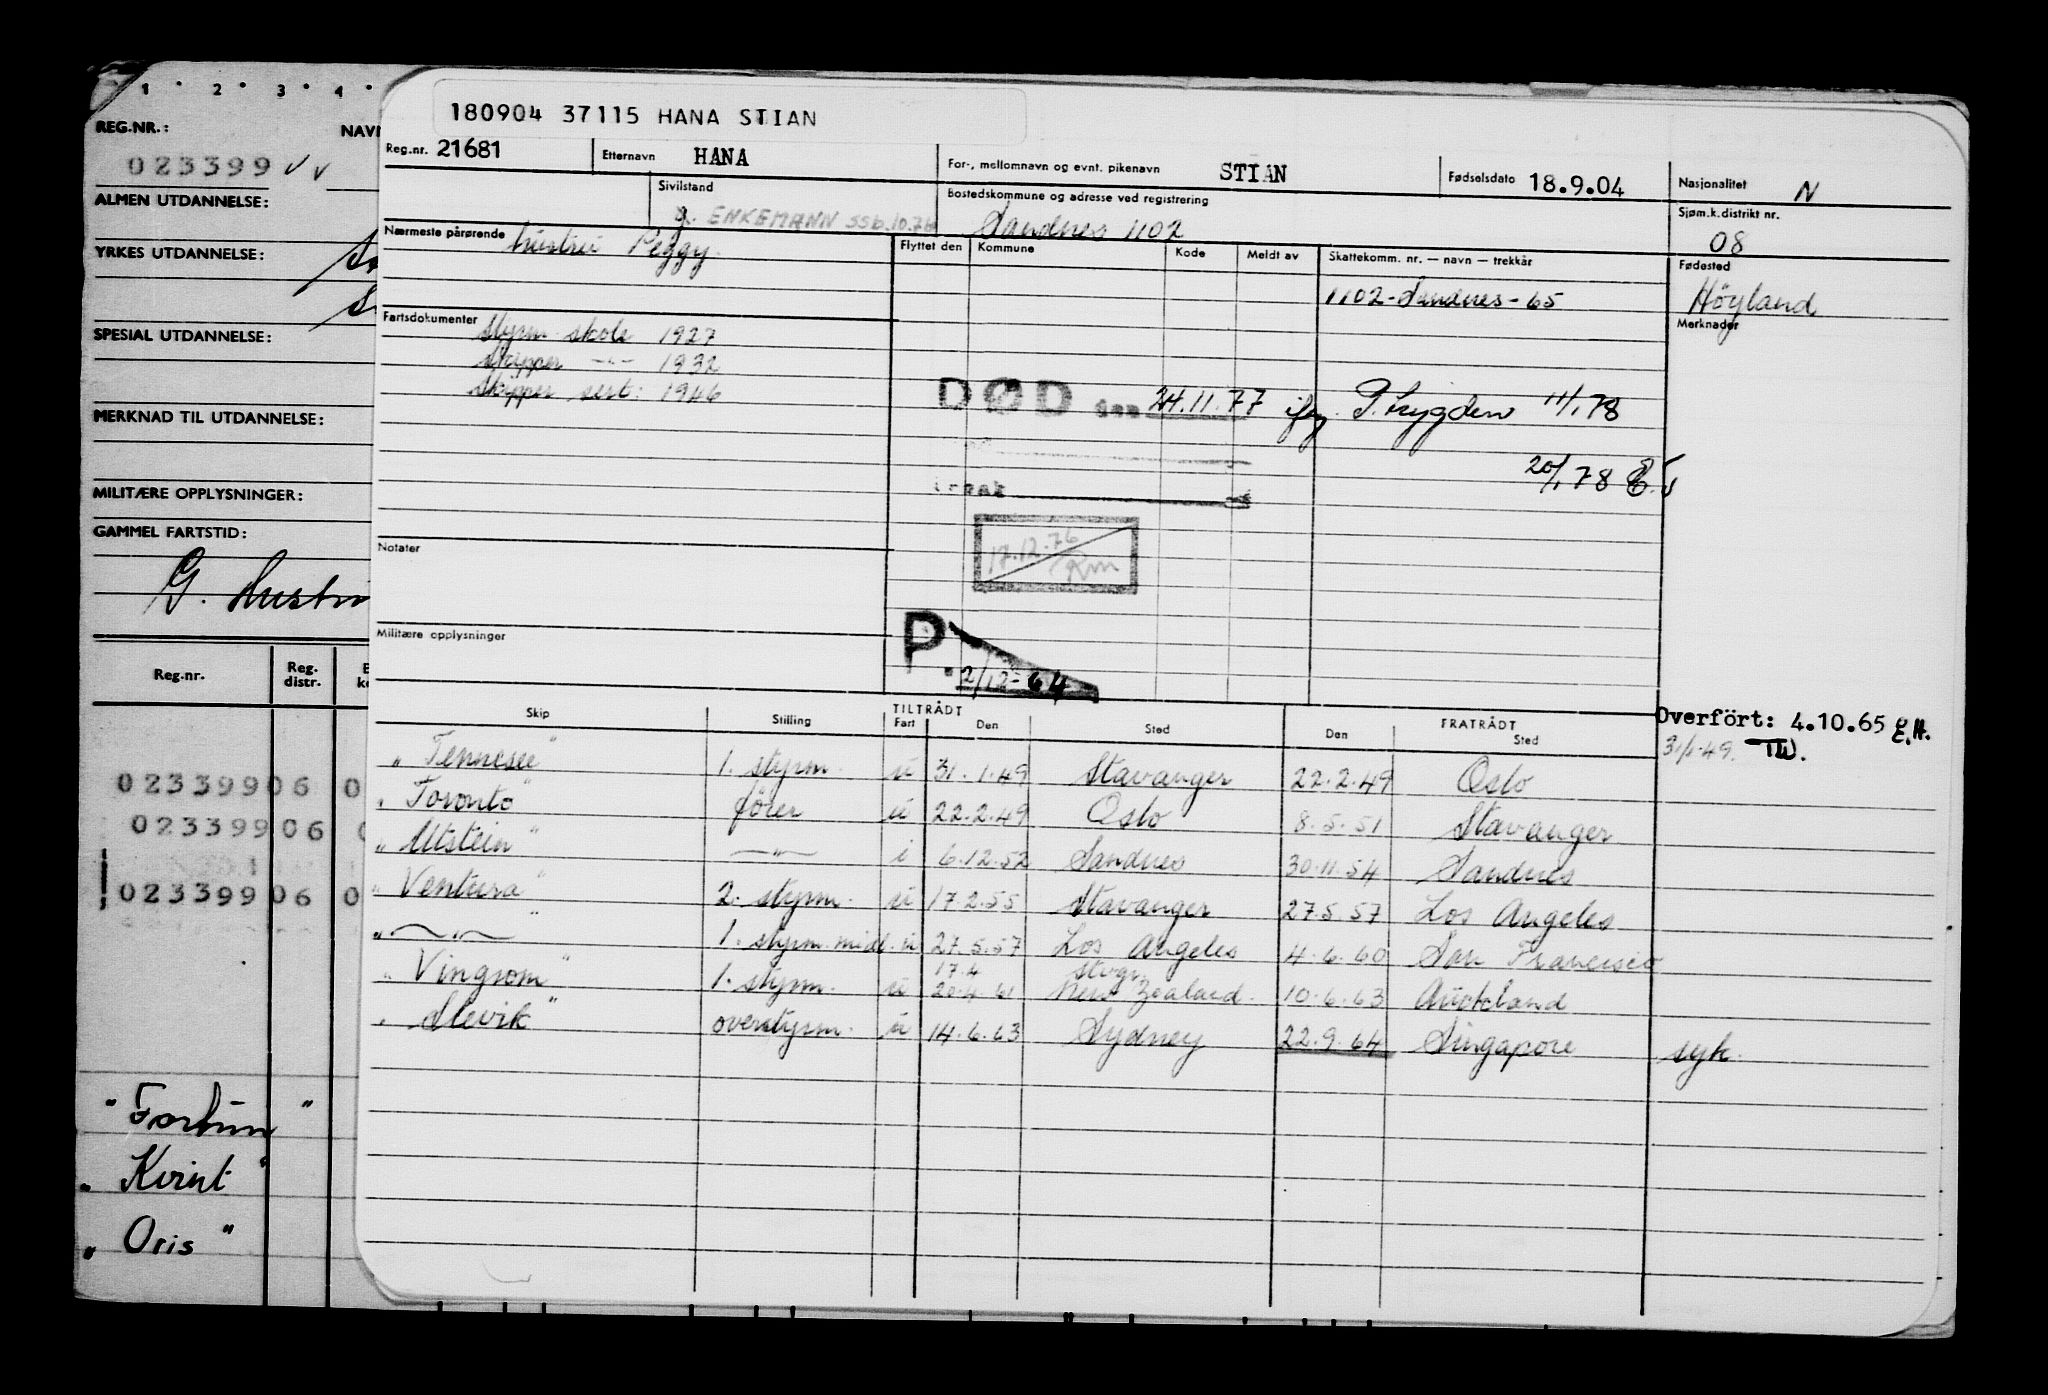 1 · 2 · 3 · 4 ·
REG.NR.:
023399
ALMEN UTDANNELSE:
YRKES UTDANNELSE:
SPESIAL UTDANNELSE:
MERKNAD TIL UTDANNELSE:
MILITÆRE OPPLYSNINGER:
GAMMEL FARTSTID:
G.
Reg.nr. Reg. distr.
023399 06 0
023399 06
023399 06 0
"Fortun"
"Kvint"
"Oris"
180904 37115 HANA STIAN
Reg.nr. 21681 Etternavn HANA For-, mellomnavn og evnt. pikenavn STIAN Fødselsdato 18.9.04 Nasjonalitet N
Sivilstand g. ENKEMANN SSB.10.76 Bostedskommune og adresse ved registrering Sandnes 1102 Sjøm.k.distrikt nr. 08
Nærmeste pårørende hustru Peggy Flyttet den Kommune Kode Meldt av Skattekomm. nr. — navn — trekkår Fødested
1102-Sandnes-65 Höyland
Fartsdokumenter Styrm. skole 1927 Merknader
Skipper —"— 1932
Skipper sert: 1946
DØD den 24.11.77 iføg. P.trygden 11/1.78
20/1 78
17.12.76
Notater
Militære opplysninger
P. 2/12-64
Skip Stilling TILTRÅDT Fart Den Sted FRATRÅDT Den Sted
Overfört: 4.10.65 E.H.
31/1-49.
"Tennesee" 1. styrm. u 31.1.49 Stavanger 22.2.49 Oslo
"Toronto" förer u 22.2.49 Oslo 8.5.51 Stavanger
"Utstein" —"— i 6.12.52 Sandnes 30.11.54 Sandnes
"Ventura" 2. styrm. u 17.2.55 Stavanger 27.5.57 Los Angeles
"—"—" 1. styrm. midl. u 27.5.57 Los Angeles 4.6.60 San Francisco
17.4 Stvgr.
"Vingnom" 1. styrm. u 20.4.61 New Zealand. 10.6.63 Auckland
"Slevik" overstyrm. u 14.6.63 Sydney 22.9.64 Singapore syk.